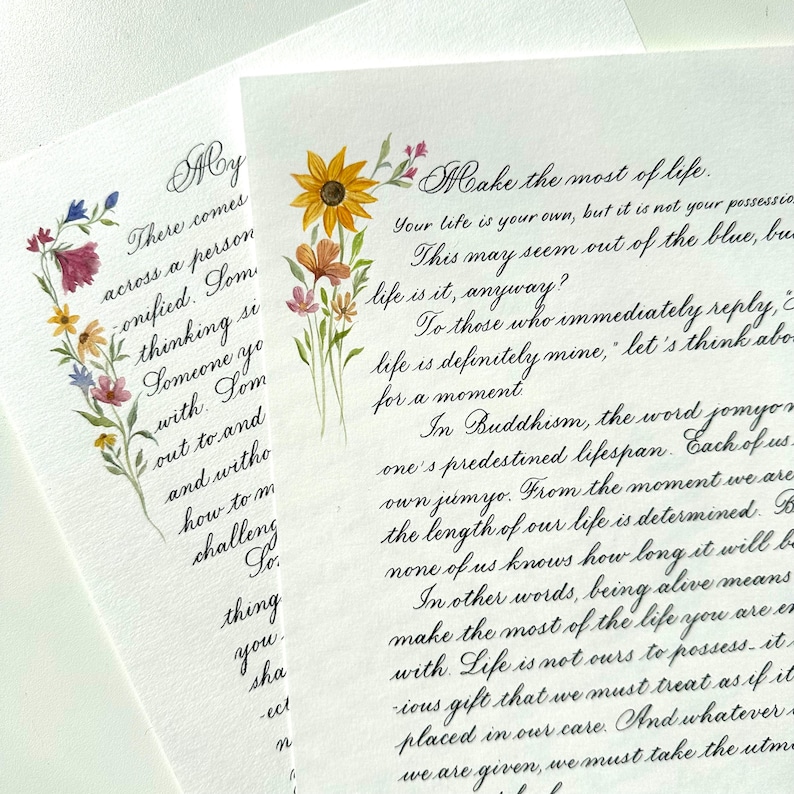 My
There comes
across a person
-onified. Som
thinking si
Someone yo
with. Som
out to and
and witho
how to m
challeng
So
thing
you
sha
-ect
Make the most of life.
Your life is your own, but it is not your possessio
This may seem out of the blue, bu
life is it, anyway?
To those who immediately reply, "
life is definitely mine," let's think abo
for a moment.
In Buddhism, the word jomyo
one's predestined lifespan. Each of us
own jumyo. From the moment we are
the length of our life is determined. B
none of us knows how long it will b
In other words, being alive means
make the most of the life you are en
with. Life is not ours to possess_ it
-ious gift that we must treat as if it
placed in our care. And whatever
we are given, we must take the utm